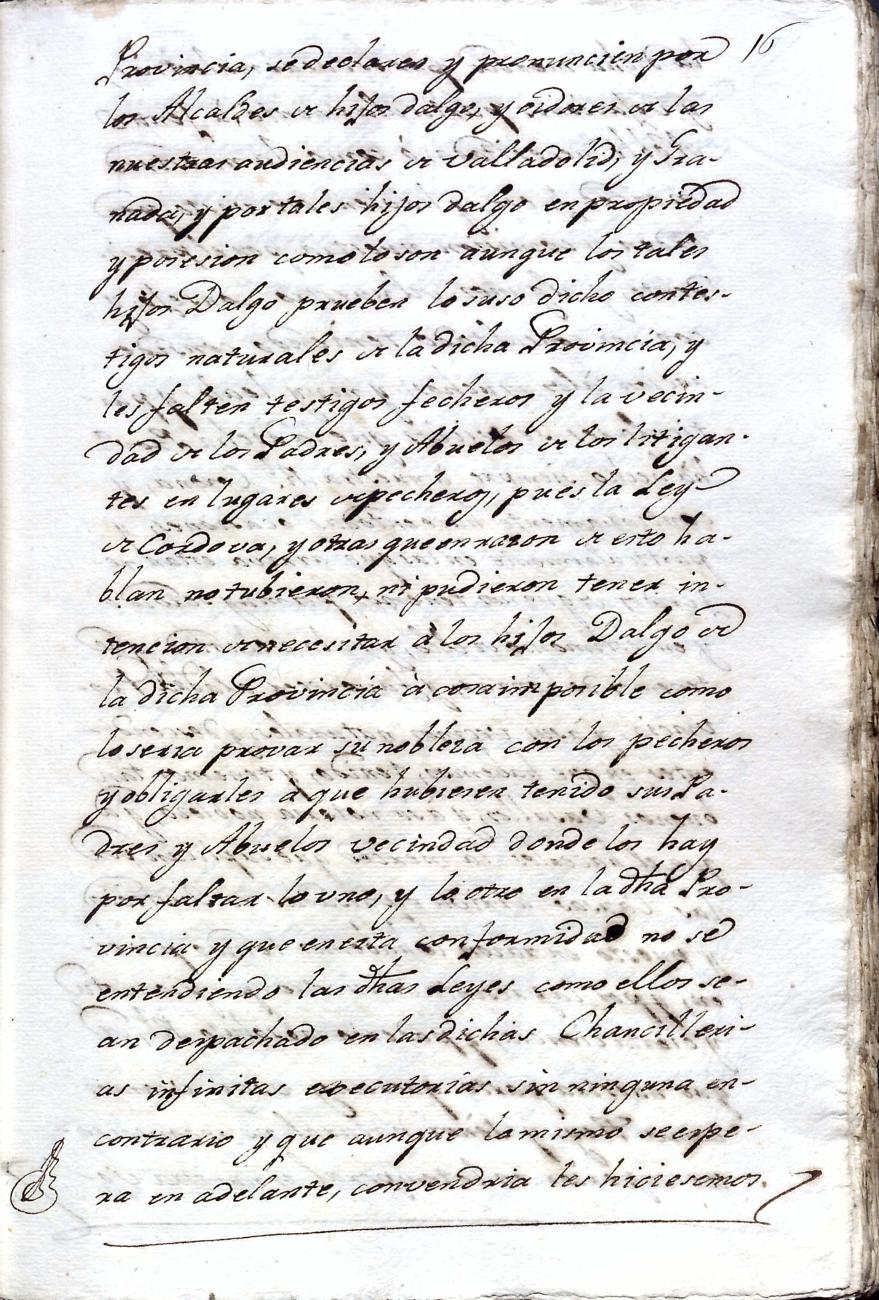 16
Provincia, se declaren y pronuncien por
los Alcaldes de hijos dalgo, y oidores de las
nuestras audiencias de Valladolid, y Gra-
nada, y por tales hijos dalgo en propiedad
y posesion como lo son aunque los tales
hijos Dalgo prueben lo suso dicho con tes-
tigos naturales de la dicha Provincia, y
les falten testigos fecheros y la vecin-
dad de los Padres, y Abuelos de los litigan-
tes en lugares de pecheros, pues la Ley
de Cordova, y otras que en razon de esto ha-
blan no tubieron, ni pudieron tener in-
tencion de necesitar à los hijos Dalgo de
la dicha Provincia à cosa imposible como
lo seria provar su nobleza con los pecheros
y obligarles a que hubiesen tenido sus Pa-
dres y Abuelos vecindad donde los hay
por faltar lo uno, y lo otro en la dha Pro-
vincia y que en esta conformidad no se
entendiendo las dhas Leyes como ellos se-
an despachado en las dichas Chancilleri-
as infinitas executorias sin ninguna en-
contrario y que aunque lo mismo se espe-
ra en adelante, convendria les hiciesemos